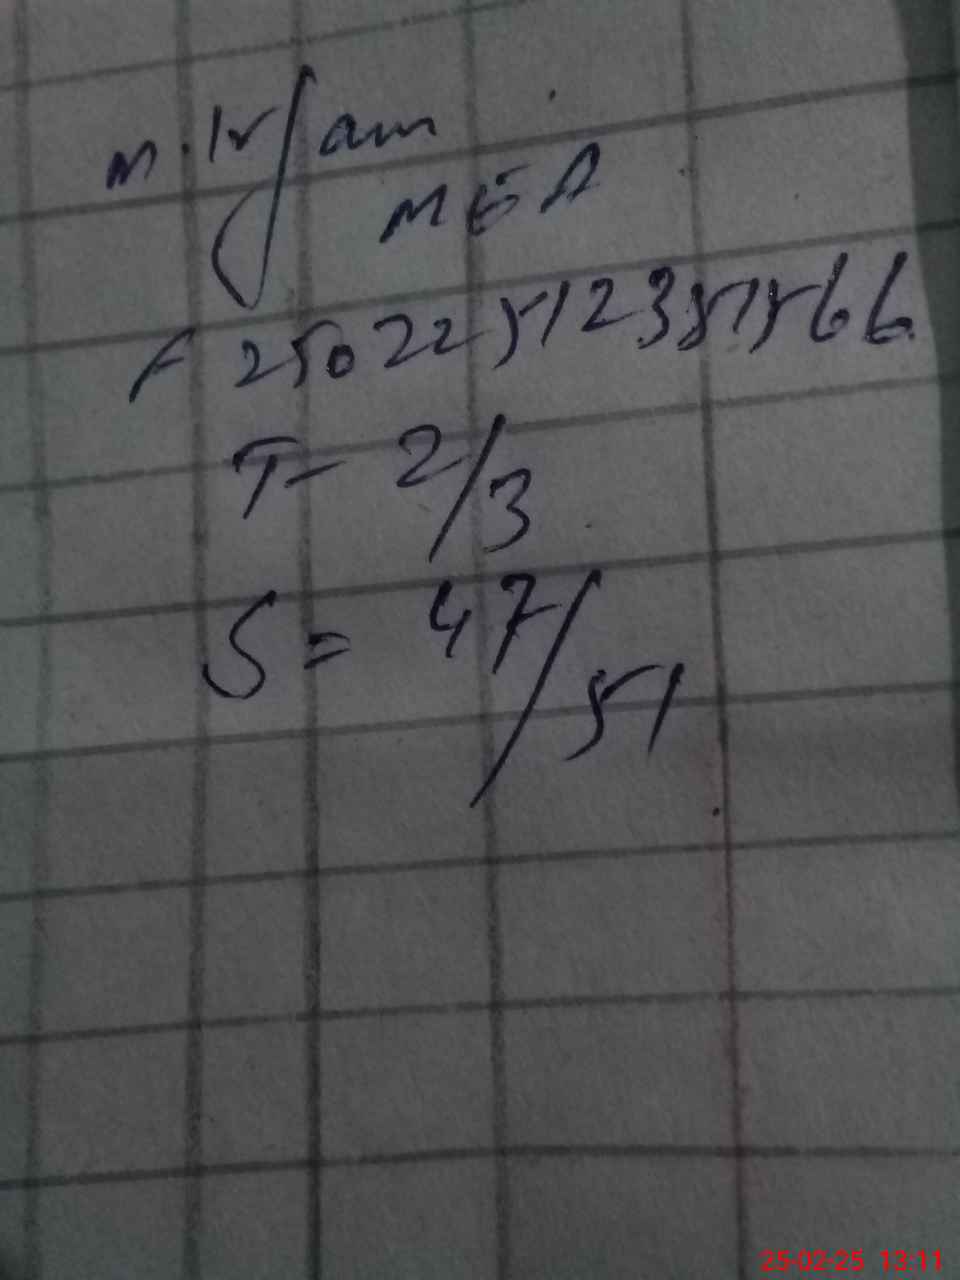 M. Irfan
MEA
F 25022512351566
T- 2/3
S = 47/51
25-02-25 13:11